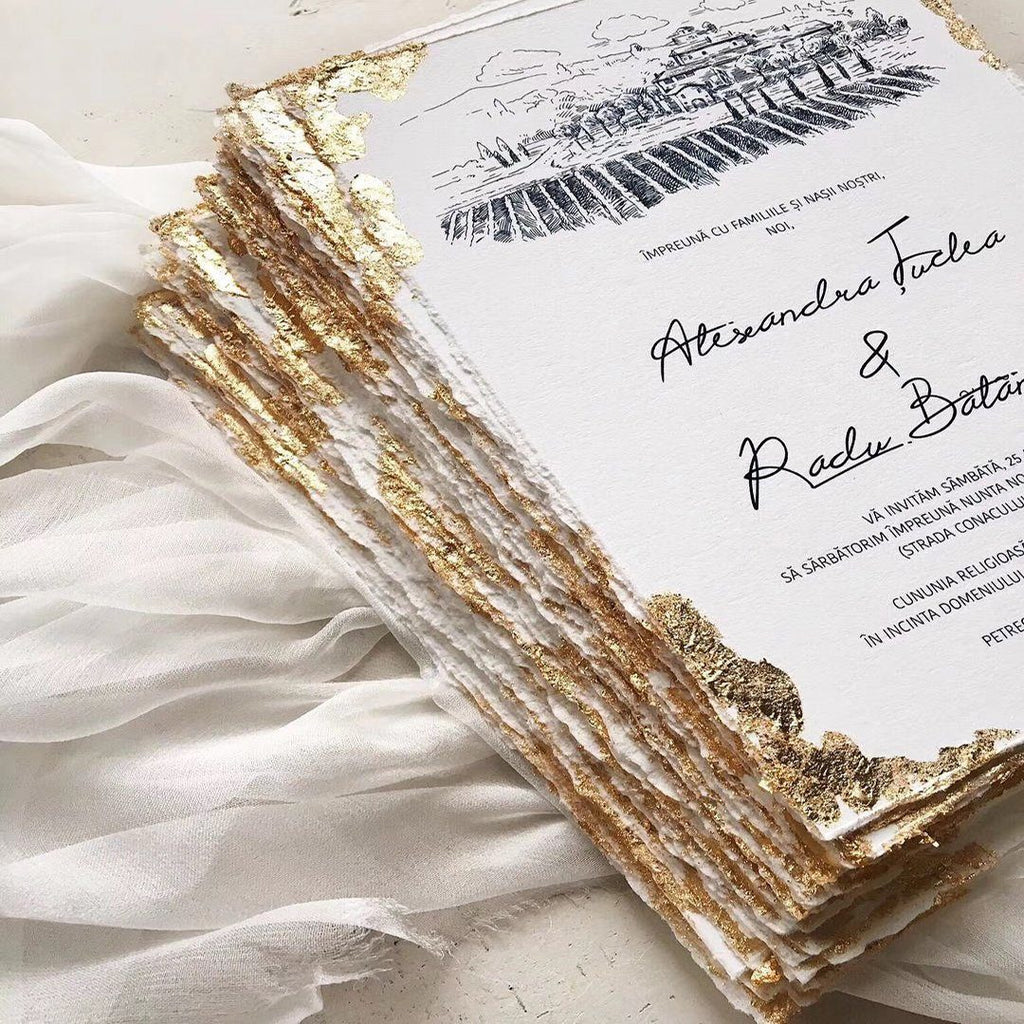 ÎMPREUNĂ CU FAMILIILE ȘI NAȘII NOȘTRI,
NOI,
Aleseandra Țuclea
&
Radu
VĂ INVITĂM SÂMBĂTĂ, 25
SĂ SĂRBĂTORIM ÎMPREUNĂ NUNTA
(STRADA CONACULUI
CUNUNIA RELIGIOASĂ
ÎN INCINTA DOMENIULUI